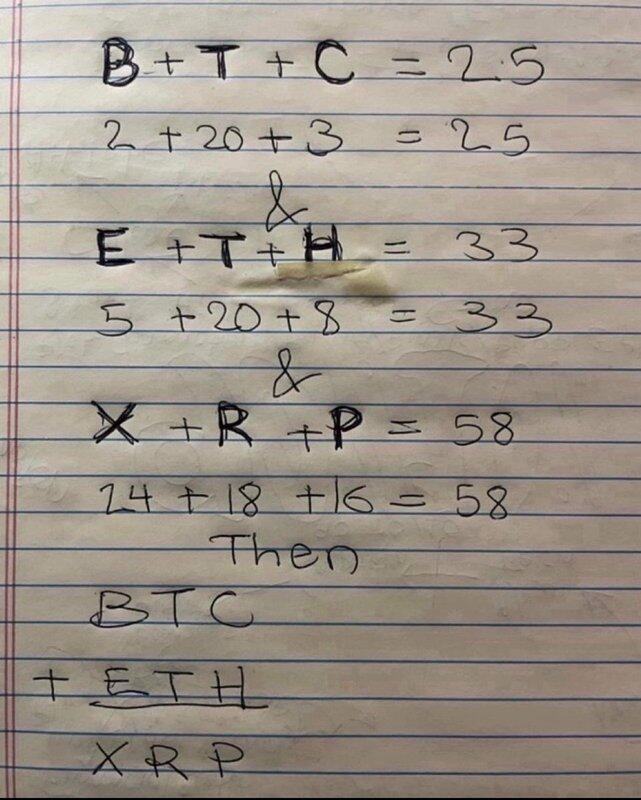 B + T + C = 25
2 + 20 + 3 = 25
&
E + T + H = 33
5 + 20 + 8 = 33
&
X + R + P = 58
24 + 18 + 16 = 58
Then
BTC
+ ETH
XRP